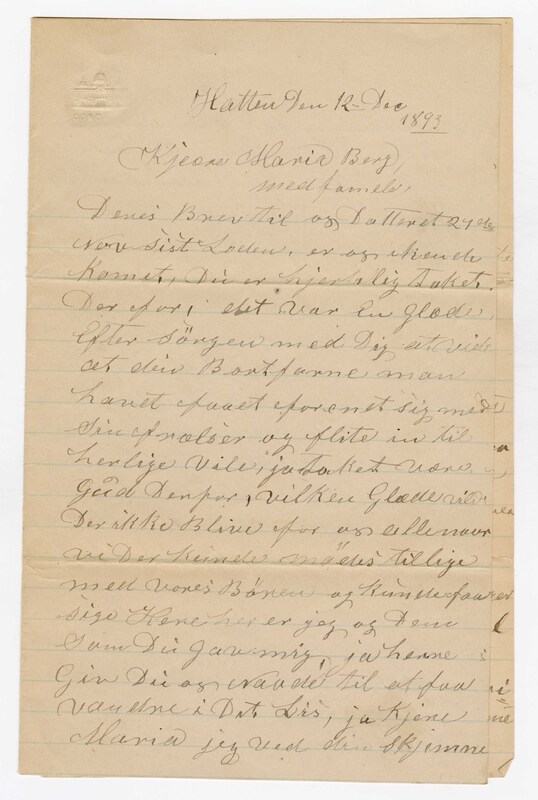 Hatten Den 12- Dec
1893
Kjeare Maria Berg,
med famele,
Deres Brev til og Datteret 24 de
Nov sist Loden, er og ihende
komet, Du er hjertelig taket.
Derfor, det var En Glæde,
Efter sörgen med Dig at vide
at din Bortfarne man
havet faaet forenet sig med
Sin frælser og flite in til
herlige Vile, ja taket være
Gud Derfor, vilken Glæde vil
Der ikke Blive for os alle naar
vi Der kunde mødes tillige
med vores Børen og kunde faa
sige Here her er jeg og Dem
Som Du gav mig, ja herre
Giv Du os Naade til at faa
vandre i Det Lis, ja Kjere
Maria jeg ved din skjemne